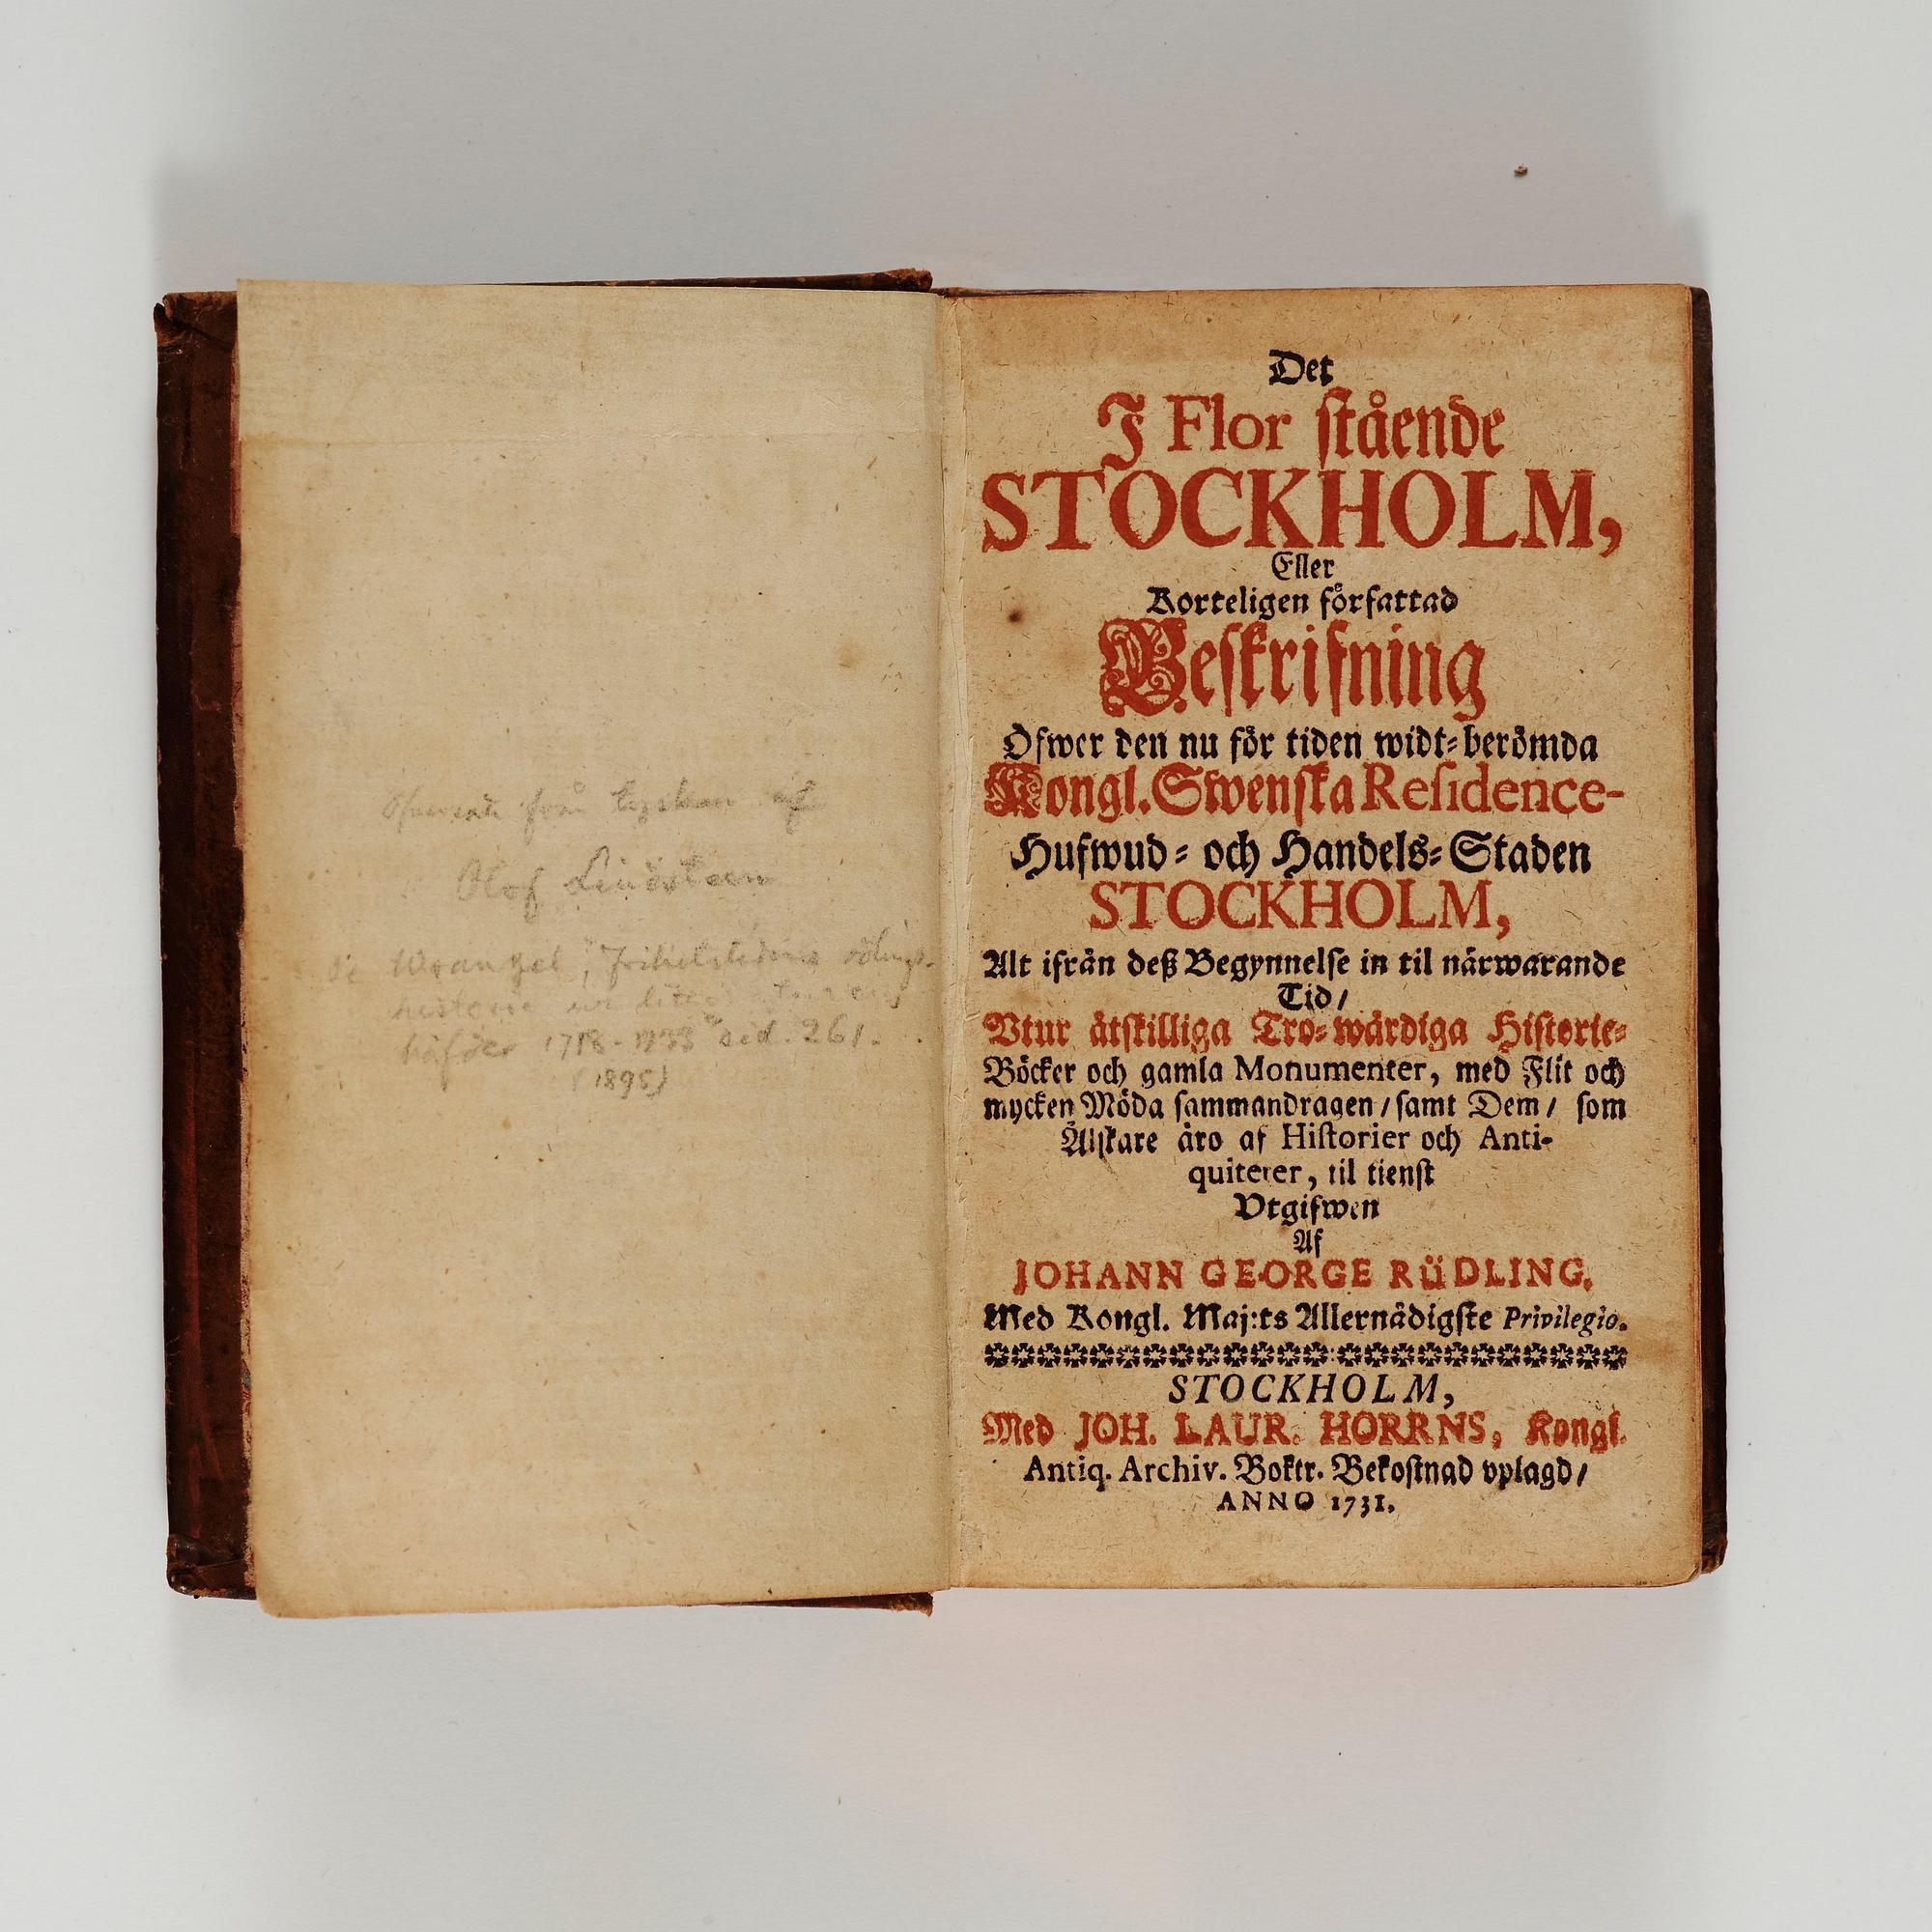 från tyskan af
Olof Lindsteen
se Wrangel, "Frihetstidens odlings-
historia ur litteraturens
häfder 1718-1733" sid. 261.
(1895)
Det
I Flor stående
STOCKHOLM,
Eller
Korteligen författad
Beskrifning
Öfwer den nu för tiden widt-berömda
Kongl. Swenska Residence-
Hufwud- och Handels-Staden
STOCKHOLM,
Alt ifrån deß Begynnelse in til närwarande
Tid/
Vtur åtskilliga Tro-wärdiga Historie-
Böcker och gamla Monumenter, med Flit och
mycken Möda sammandragen/ samt Dem/ som
Älskare äro af Historier och Anti-
quiteter, til tienst
Vtgifwen
Af
JOHANN GEORGE RüDLING.
Med Kongl. Maj:ts Allernådigste Privilegio.
STOCKHOLM,
Med JOH. LAUR. HORRNS, Kongl.
Antiq. Archiv. Boktr. Bekostnad vplagd/
ANNO 1731.